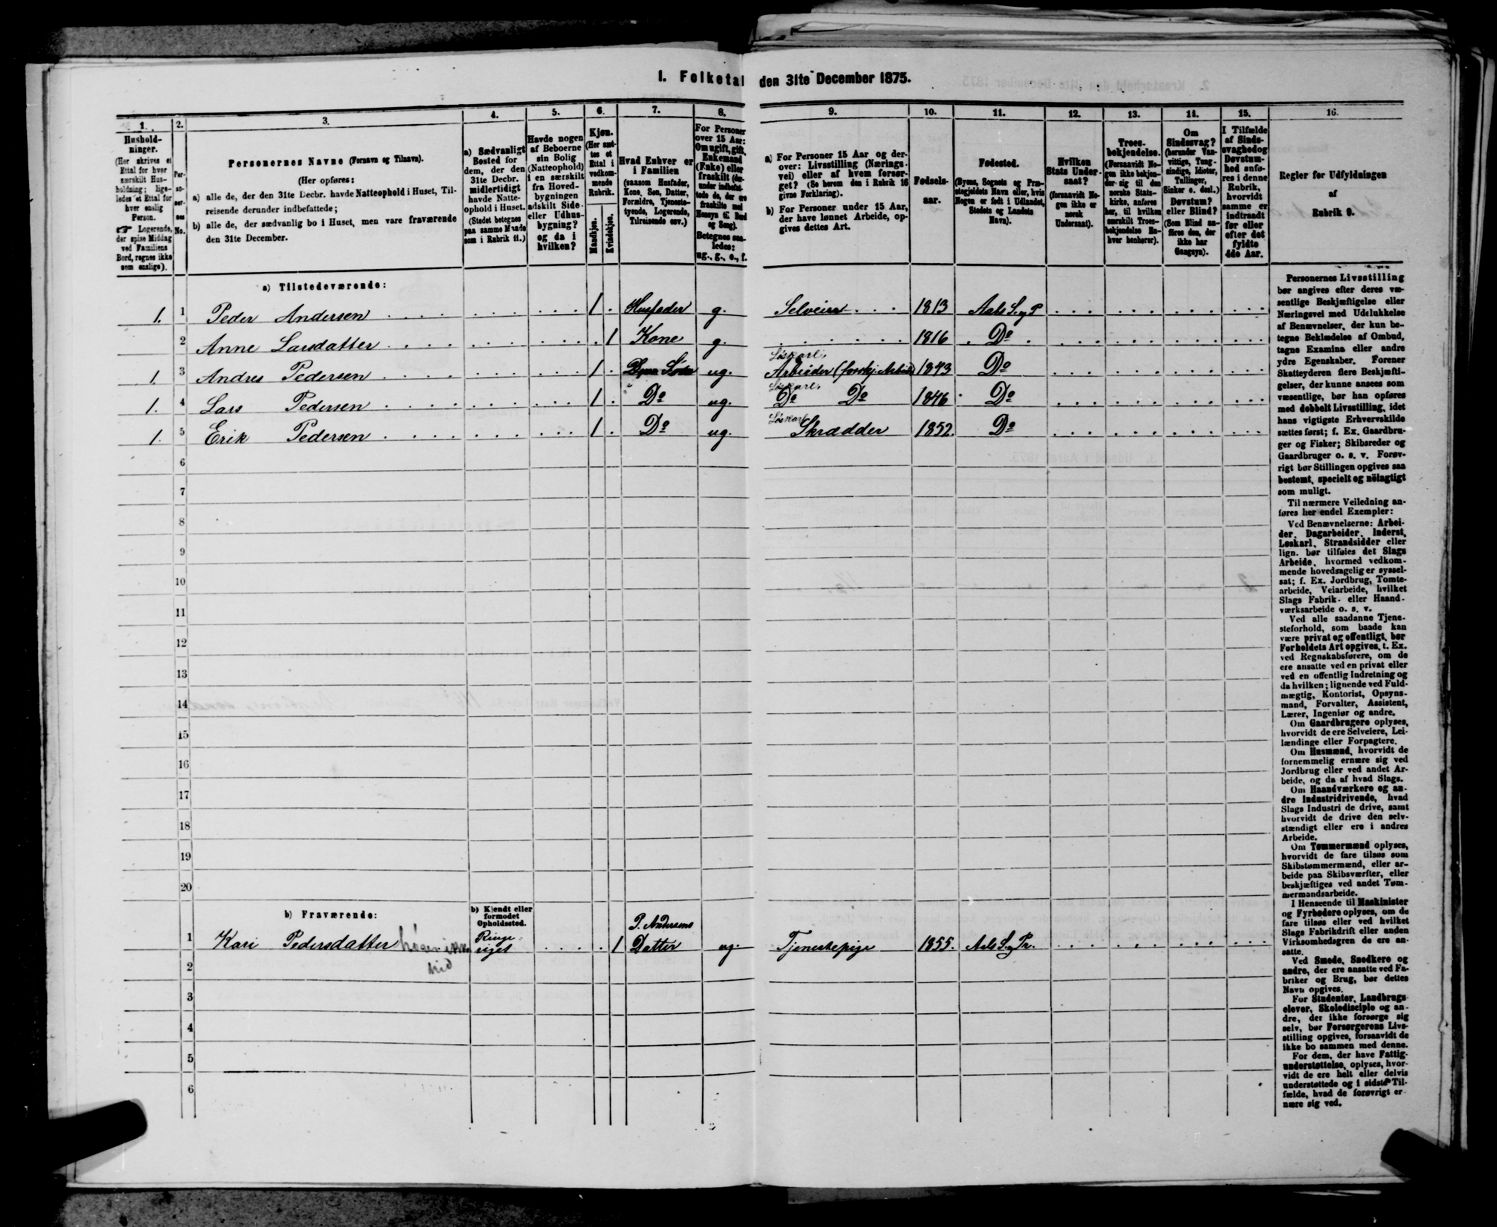 I. Folketal den 31te December 1875.
1. 2. 3. 4. 5. 6. 7. 8. 9. 10. 11. 12. 13. 14. 15. 16.
Hushold-
ninger.
(Her skrives et
Ettal for hver
særskilt Hus-
holdning; lige-
ledes et Ettal for
hver enslig
Person.
☞ Logerende,
der spise Middag
ved Familiens
Bord, regnes ikke
som enslige).
Per-
so-
ner-
nes
No.
Personernes Navne (Fornavn og Tilnavn).
(Her opføres:
a) alle de, der den 31te Decbr. havde Natteophold i Huset, Til-
reisende derunder indbefattede;
b) alle de, der sædvanlig bo i Huset, men vare fraværende
den 31te December.
a) Sædvanligt
Bosted for
dem, der den
31te Decbr.
midlertidigt
havde Natte-
ophold i Huset.
(Stedet betegnes
paa samme Maade
som i Rubrik 11.)
Havde nogen
af Beboerne
sin Bolig
(Natteophold)
i en særskilt
fra Hoved-
bygningen
adskilt Side-
eller Udhus-
bygning?
og da i
hvilken?
Kjøn.
(Her sæt-
tes et
Ettal i
vedkom-
mende
Rubrik.
Mandkjøn.
Kvindekjøn.
Hvad Enhver er
i Familien
(saasom Husfader,
Kone, Søn, Datter,
Forældre, Tjeneste-
tyende, Logerende,
Tilreisende osv.)
For Personer
over 15 Aar:
Om ugift, gift,
Enkemand
(Enke) eller
fraskilt
Betegnes saa-
ledes:
ug., g., e., f.
a) For Personer 15 Aar og der-
over: Livsstilling (Nærings-
vei) eller af hvem forsør-
get? (Se herom den i Rubrik 16
givne Forklaring).
b) For Personer under 15 Aar,
der have lønnet Arbeide, op-
gives dettes Art.
Fødsels-
aar.
Fødested.
(Byens, Sognets og Præ-
stegjeldets Navn eller, hvis
Nogen er født i Udlandet,
Stedets og Landets
Navn).
Hvilken
Stats Under-
saat?
(forsaavidt No-
gen ikke er
norsk
Undersaat).
Troes-
bekjendelse.
(Forsaavidt No-
gen ikke bekjen-
der sig til den
norske Stats-
kirke, anføres
her, til hvilken
særskilt Troes-
bekjendelse En-
hver henhører).
Om
Sindssvag?
(herunder Van-
vittige, Tung-
sindige, Idioter,
Tullinger,
Sinker o. desl.)
Døvstum?
eller Blind?
(Som Blind an-
føres den, der
ikke har
Gangsyn).
I Tilfælde
af Sinds-
svaghed og
Døvstum-
hed anfø-
res i denne
Rubrik,
hvorvidt
samme er
indtraadt
før eller
efter det
fyldte
4de Aar.
Regler for Udfyldningen
af
Rubrik 9.
a) Tilstedeværende:
1. 1 Peder Andersen 1 Husfader g. Selveier 1813 Aals S. og P
2 Anne Larsdatter 1 Kone g. 1816 Do
Løskarl.
1. 3 Andres Pedersen 1 Søn ug. Arbeider (forskj. Arbeid) 1843 Do
Løskarl.
1. 4 Lars Pedersen 1 Do ug. Do Do 1846 Do
Løskarl
1. 5 Erik Pedersen 1 Do ug. Skrædder 1852. Do
6
7
8
9
10
11
12
13
14
15
16
17
18
19
20
b) Fraværende:
b) Kjendt eller
formodet
Opholdssted.
1 Kari Pedersdatter Ringe-
riget 1 P. Andersens
Datter ug. Tjenestepige 1855. Aals S. og Pr.
2
3
4
5
6
Personernes Livsstilling
bør angives efter deres væ-
sentlige Beskjæftigelse eller
Næringsvei med Udelukkelse
af Benævnelser, der kun be-
tegne Beklædelse af Ombud,
tagne Examina eller andre
ydre Egenskaber. Forener
Skatteyderen flere Beskjæfti-
gelser, der kunne ansees som
væsentlige, bør han opføres
med dobbelt Livsstilling, idet
hans vigtigste Erhvervskilde
sættes først; f. Ex. Gaardbru-
ger og Fisker; Skibsreder og
Gaardbruger o. s. v. Forøv-
rigt bør Stillingen opgives saa
bestemt, specielt og nöiagtigt
som muligt.
Til nærmere Veiledning an-
føres her endel Exempler:
Ved Benævnelserne: Arbei-
der, Dagarbeider, Inderst,
Løskarl, Strandsidder eller
lign. bør tilføies det Slags
Arbeide, hvormed vedkom-
mende hovedsagelig er syssel-
sat; f. Ex. Jordbrug, Tomte-
arbeide, Veiarbeide, hvilket
Slags Fabrik- eller Haand-
værksarbeide o. s. v.
Ved alle saadanne Tjene-
steforhold, som baade kan
være privat og offentligt, bør
Forholdets Art opgives, t. Ex.
ved Regnskabsførere, om de
ere ansatte ved en privat eller
ved en offentlig Indretning og
da hvilken; lignende ved Fuld-
mægtig, Kontorist, Opsyns-
mand, Forvalter, Assistent,
Lærer, Ingeniør og andre.
Om Gaardbrugere oplyses,
hvorvidt de ere Selveiere, Lei-
lændinge eller Forpagtere.
Om Husmænd, hvorvidt de
fornemmelig ernære sig ved
Jordbrug eller ved andet Ar-
beide, og da af hvad Slags.
Om Haandværkere og an-
dre Industridrivende, hvad
Slags Industri de drive, samt
hvorvidt de drive den selv-
stændigt eller ere i andres
Arbeide.
Om Tømmermænd oplyses,
hvorvidt de fare tilsøs som
Skibstømmermænd, eller ar-
beide paa Skibsværfter, eller
beskjæftiges ved andet Tøm-
mermandsarbeide.
I Henseende til Maskinister
og Fyrbødere oplyses, om de
fare tilsøs eller ved hvilket
Slags Fabrikdrift eller anden
Virksomhedsgren de ere an-
satte.
Ved Smede, Snedkere og
andre, der ere ansatte ved Fa-
briker og Brug, bør dettes
Navn opgives.
For Studenter, Landbrugs-
elever, Skoledisciple og an-
dre, der ikke forsørge sig
selv, bør Forsørgerens Livs-
stilling opgives, forsaavidt de
ikke bo sammen med denne.
For dem, der have Fattig-
understøttelse, oplyses, hvor-
vidt de ere helt eller delvis
understøttede og i sidste Til-
fælde, hvad de forøvrigt er-
nære sig ved.